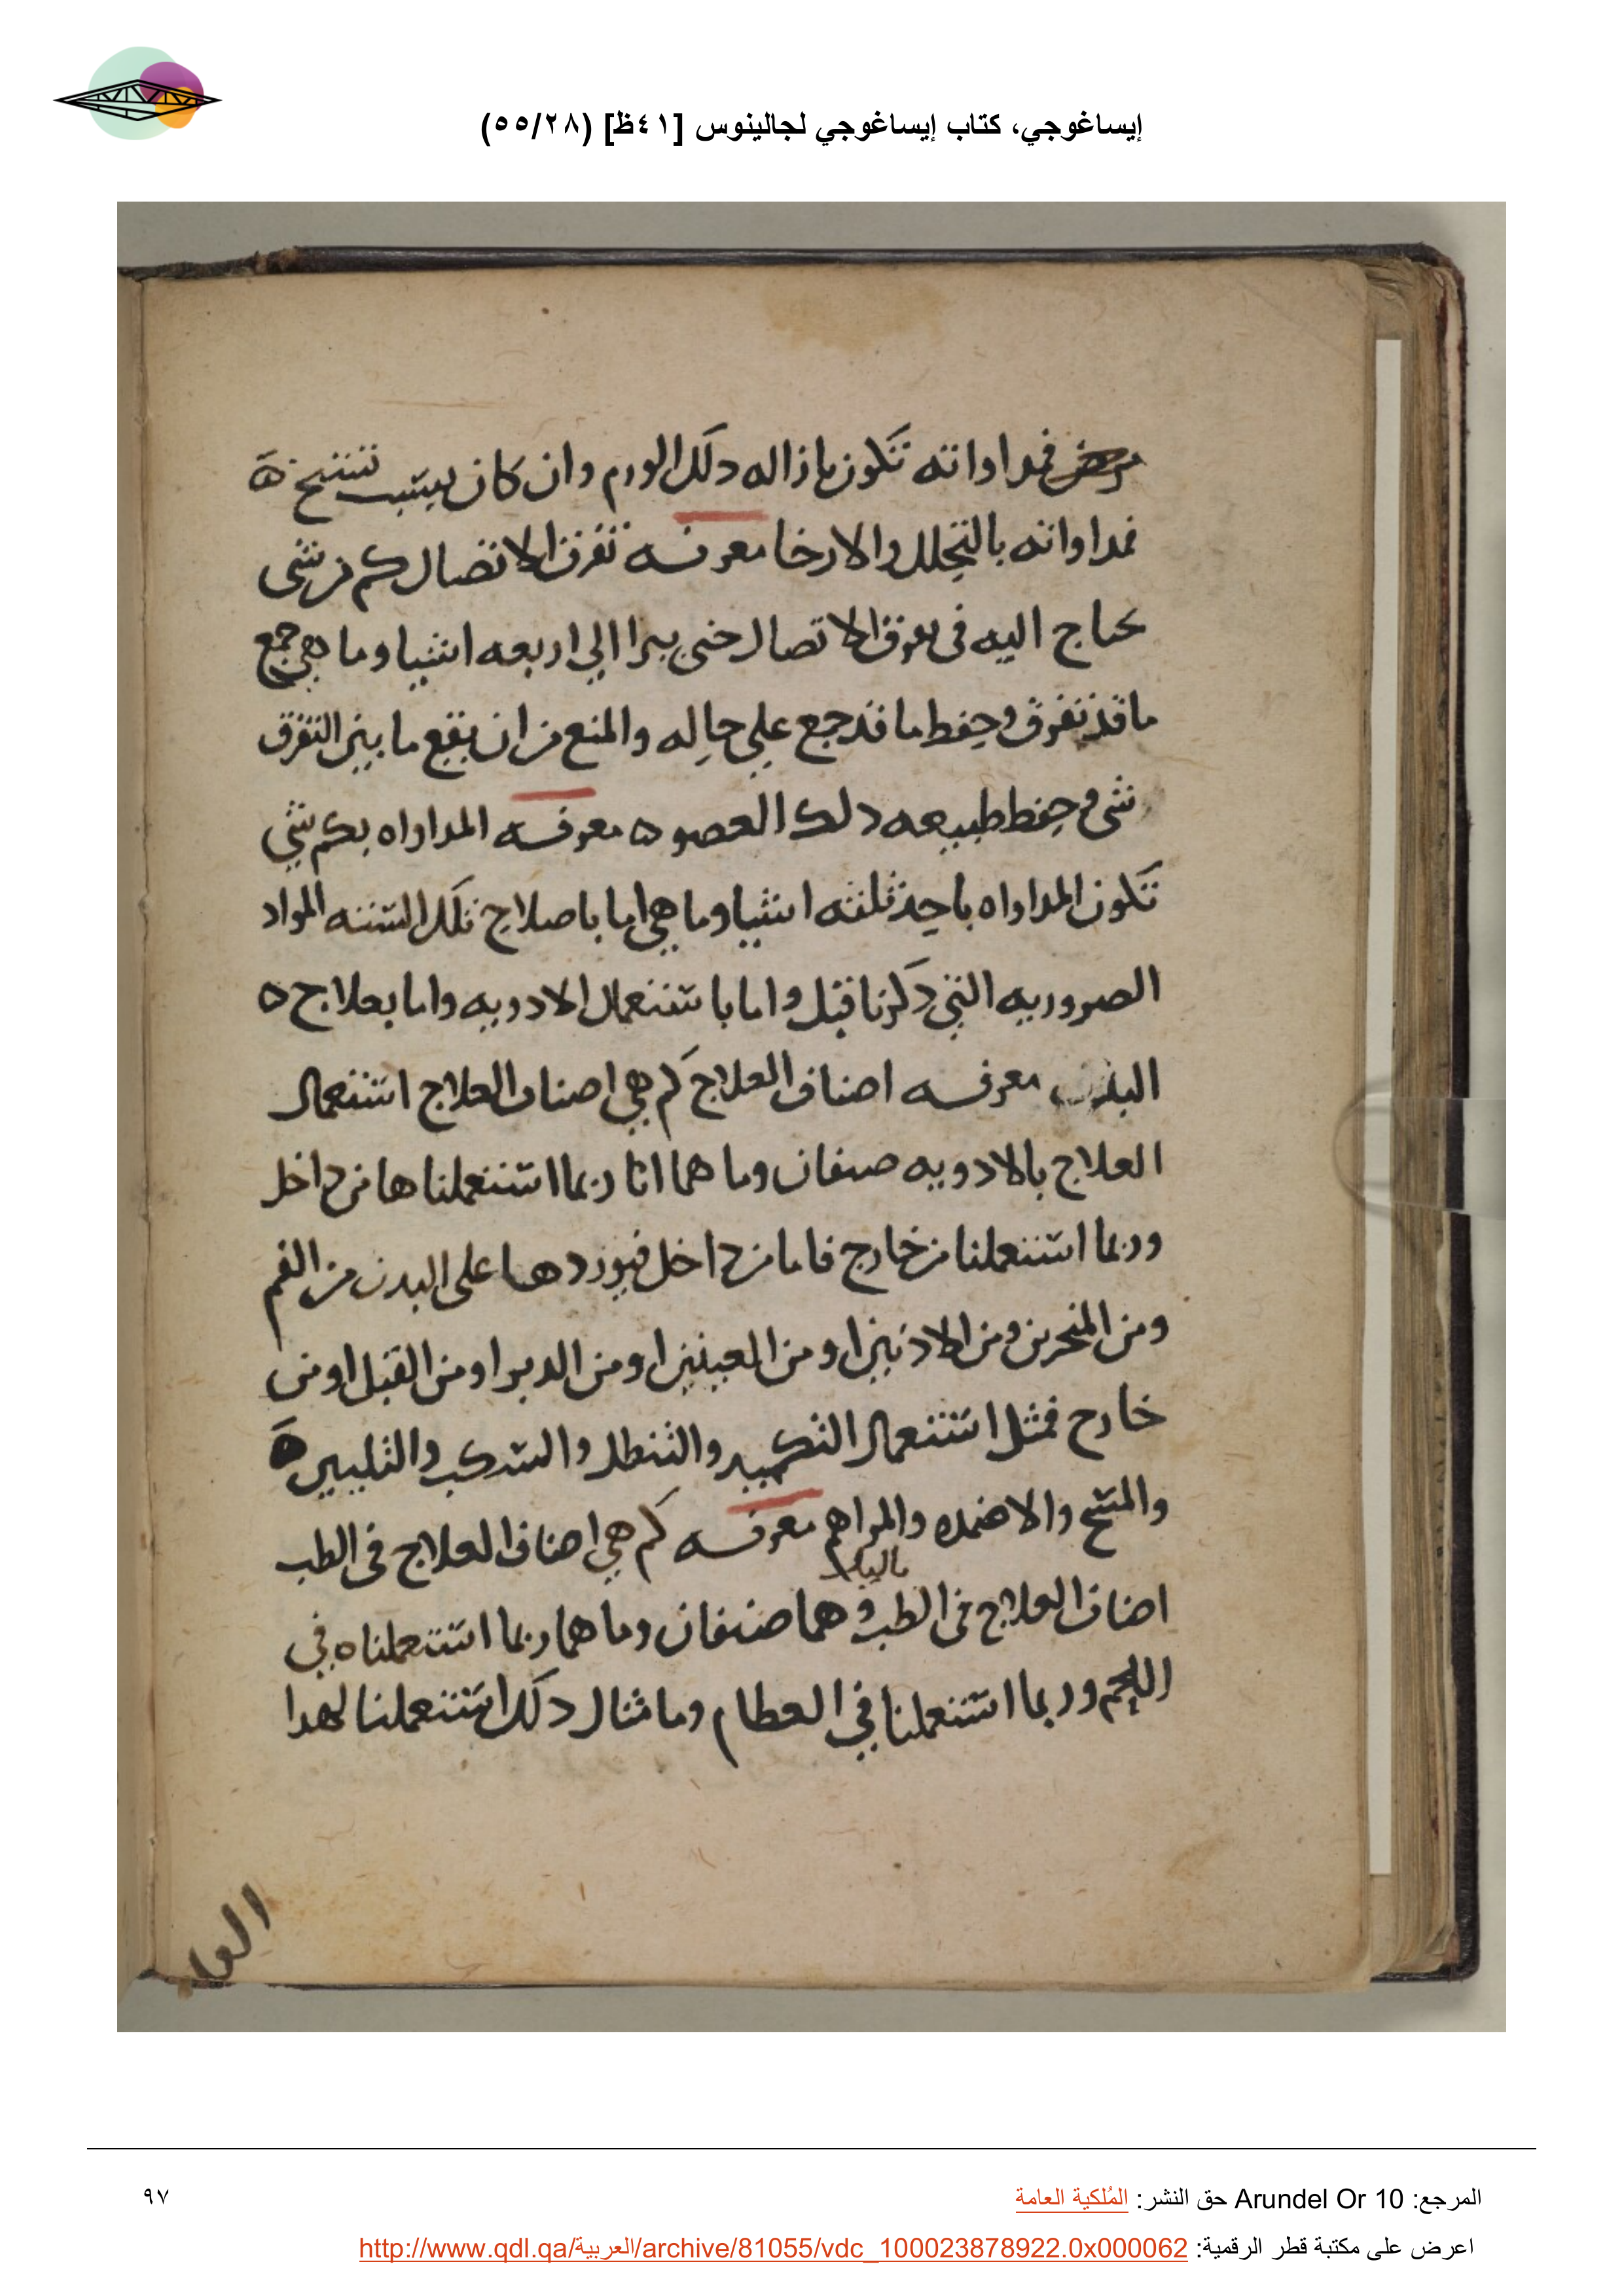 إيساغوجي، كتاب إيساغوجي لجالينوس [٤١ظ] (٥٥/٢٨)
مرض فمداواته تكون بازاله دلك الورم وان كان بسبب تشنج ه
فمداواته بالتحلل والارخا معرفه تفرق الاتصال كم من شى
يحتاج اليه فى تفرق الاتصال حتى يبرا الي اربعه اشيا وما هي جمع
ما قد تفرق وحفظ ما قد جمع علي حاله والمنع من ان يقع ما بين التفرق
شى وحفظ طبيعه دلك العصو ه معرفه المداواه بكم شي
تكون المداواه باحد ثلثه اشيا وما هي اما باصلاح تلك الستنه المواد
الصروريه التي دكرنا قبل واما باستعمال الادويه واما بعلاج ه
البدن معرفه اصناف العلاج كم هي اصناف العلاج استعمال
العلاج بالادويه صنفان وما هما انا ربما استعملناها من داخل
وربما استعملنا من خارج فاما من داخل فيوردها على البدن من الفم
ومن المنحرين ومن الادنين او من العينين او من الدبر او من القبل او من
خارج فمثل استعمال التكميد والتنطل والسكب والتليين ه
والمسح والاضمده والمراهم معرفه كم هي اصناف العلاج فى الطب
باليد
اصناف العلاج في الطب وهما صنفان وما هما ربما استعملناه في
اللحم وربما استعملنا في العطام وما مثال دلك استعملنا لهدا
العلا
المرجع: Arundel Or 10 حق النشر: المُلكية العامة
٩٧
اعرض على مكتبة قطر الرقمية: http://www.qdl.qa/العربية/archive/81055/vdc_100023878922.0x000062